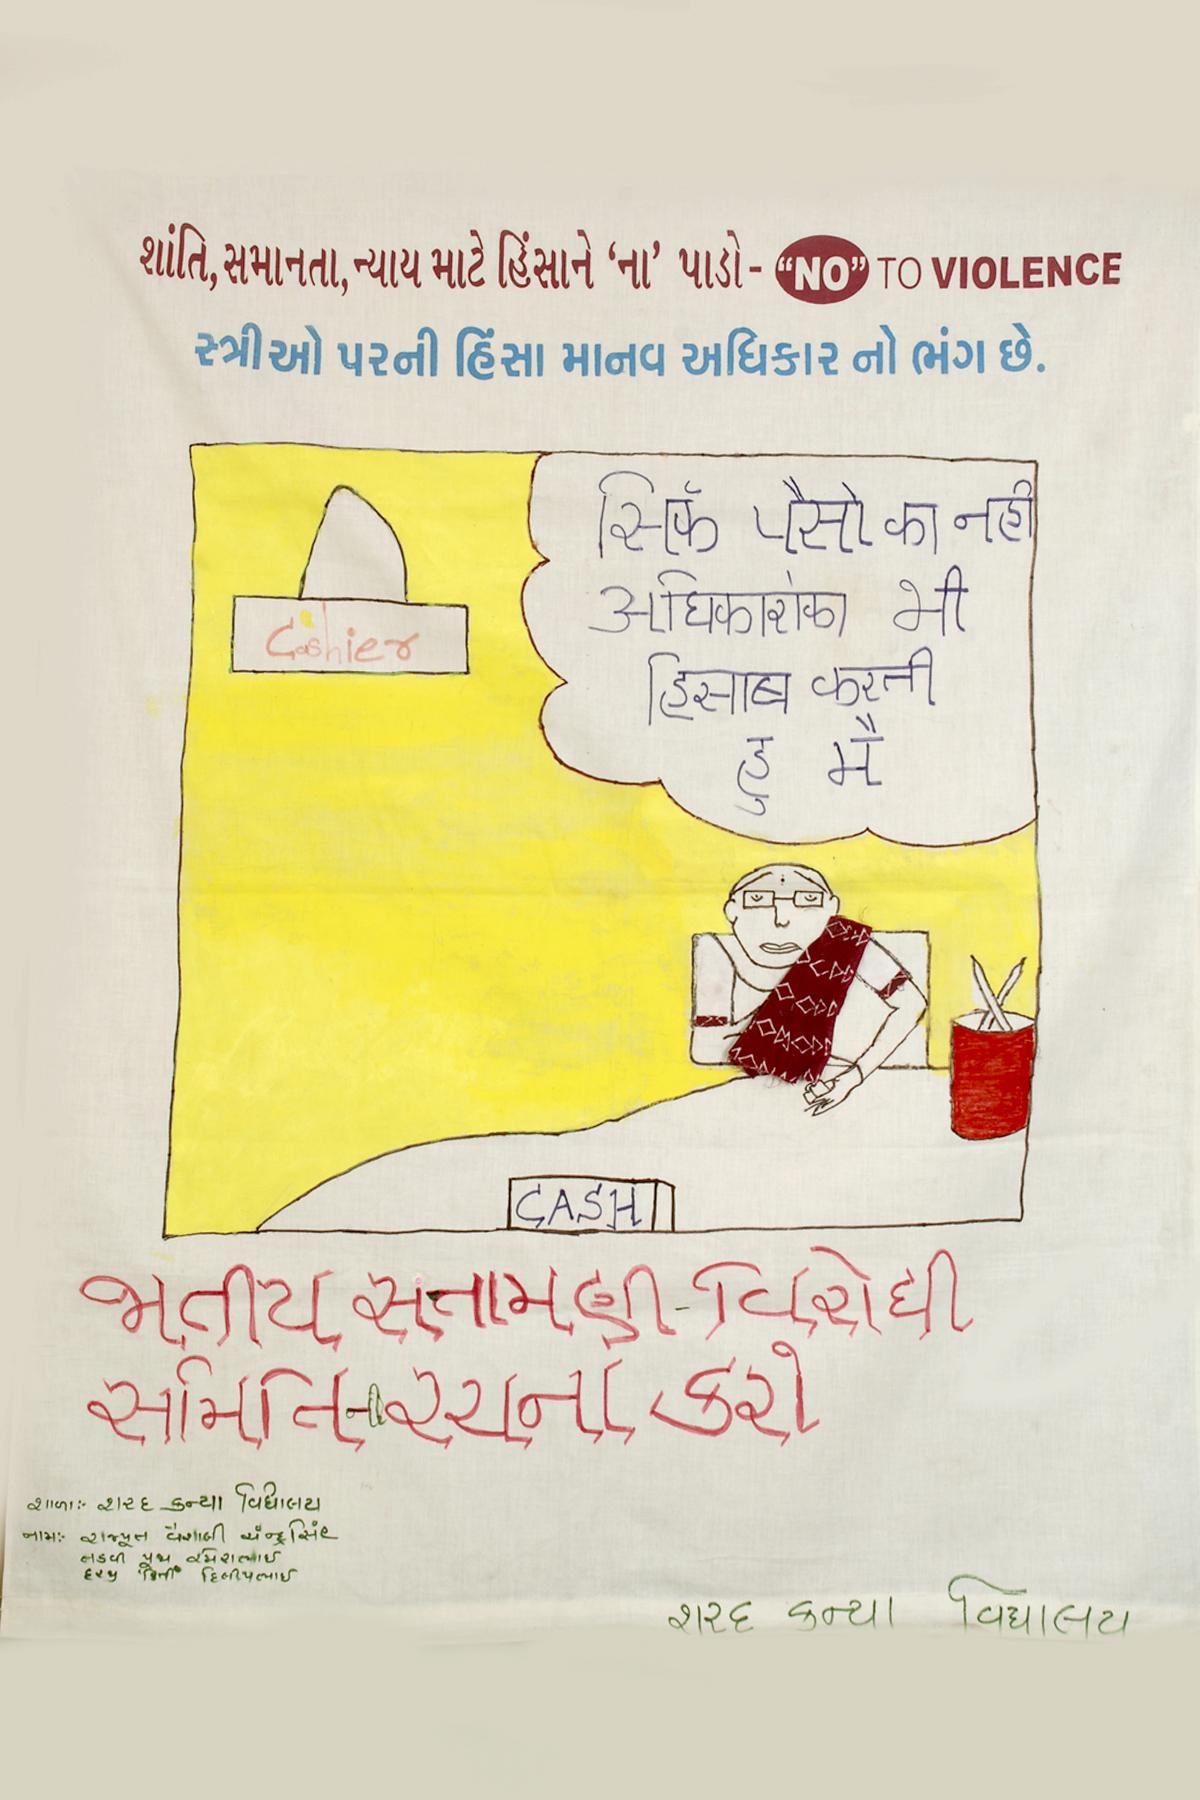 શાંતિ, સમાનતા, ન્યાય માટે હિંસાને ‘ના’ પાડો - “NO” TO VIOLENCE
સ્ત્રીઓ પરની હિંસા માનવ અધિકાર નો ભંગ છે.
सिर्फ पैसो का नही
अधिकारोका भी
हिसाब करती
हु मै
Cashier
CASH
જાતીય સતામણી-વિરોધી
સમિતિની રચના કરો
શાળા:- શરદ કન્યા વિદ્યાલય
નામ:- રાજપૂત વૈશાલી ચંન્દ્રસિંહ
તડવી પૂજા
દિલીપભાઈ
શરદ કન્યા વિદ્યાલય